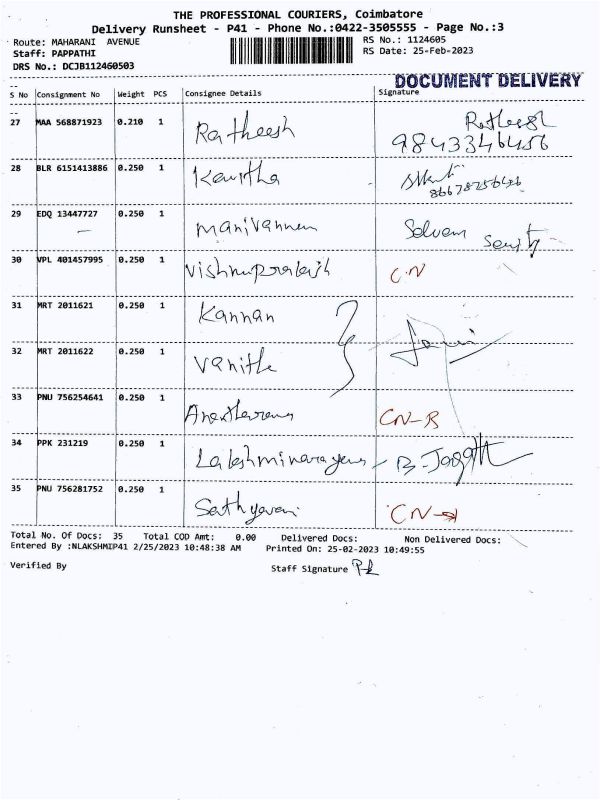 THE PROFESSIONAL COURIERS, Coimbatore
Delivery Runsheet - P41 - Phone No.:0422-3505555 - Page No.:3
Route: MAHARANI AVENUE
RS No.: 1124605
Staff: PAPPATHI
RS Date: 25-Feb-2023
DRS No.: DCJB112460503
DOCUMENT DELIVERY
S No Consignment No Weight PCS Consignee Details Signature
27 MAA 568871923 0.210 1 Ratheesh Ratheesh
9843346456
28 BLR 6151413886 0.250 1 Kavitha
29 EDQ 13447727 0.250 1 Manivannan Selvam
30 VPL 401457995 0.250 1 Vishnuprakash C.N
31 MRT 2011621 0.250 1 Kannan
32 MRT 2011622 0.250 1 Vanitha
33 PNU 756254641 0.250 1 CN-R
34 PPK 231219 0.250 1 Lakshminarayana
35 PNU 756281752 0.250 1 CN
Total No. Of Docs: 35 Total COD Amt: 0.00 Delivered Docs: Non Delivered Docs:
Entered By :NLAKSHMIP41 2/25/2023 10:48:38 AM Printed On: 25-02-2023 10:49:55
Verified By
Staff Signature